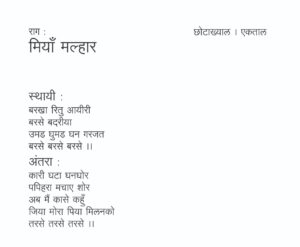 राग :
छोटाख्याल । एकताल
मियाँ मल्हार
स्थायी :
बरखा रितु आयीरी
बरसे बदरीया
उमड घुमड घन गरजत
बरसे बरसे बरसे ।।
अंतरा :
कारी घटा घनघोर
पपिहरा मचाए शोर
अब मैं कासे कहुँ
जिया मोरा पिया मिलनको
तरसे तरसे तरसे ।।